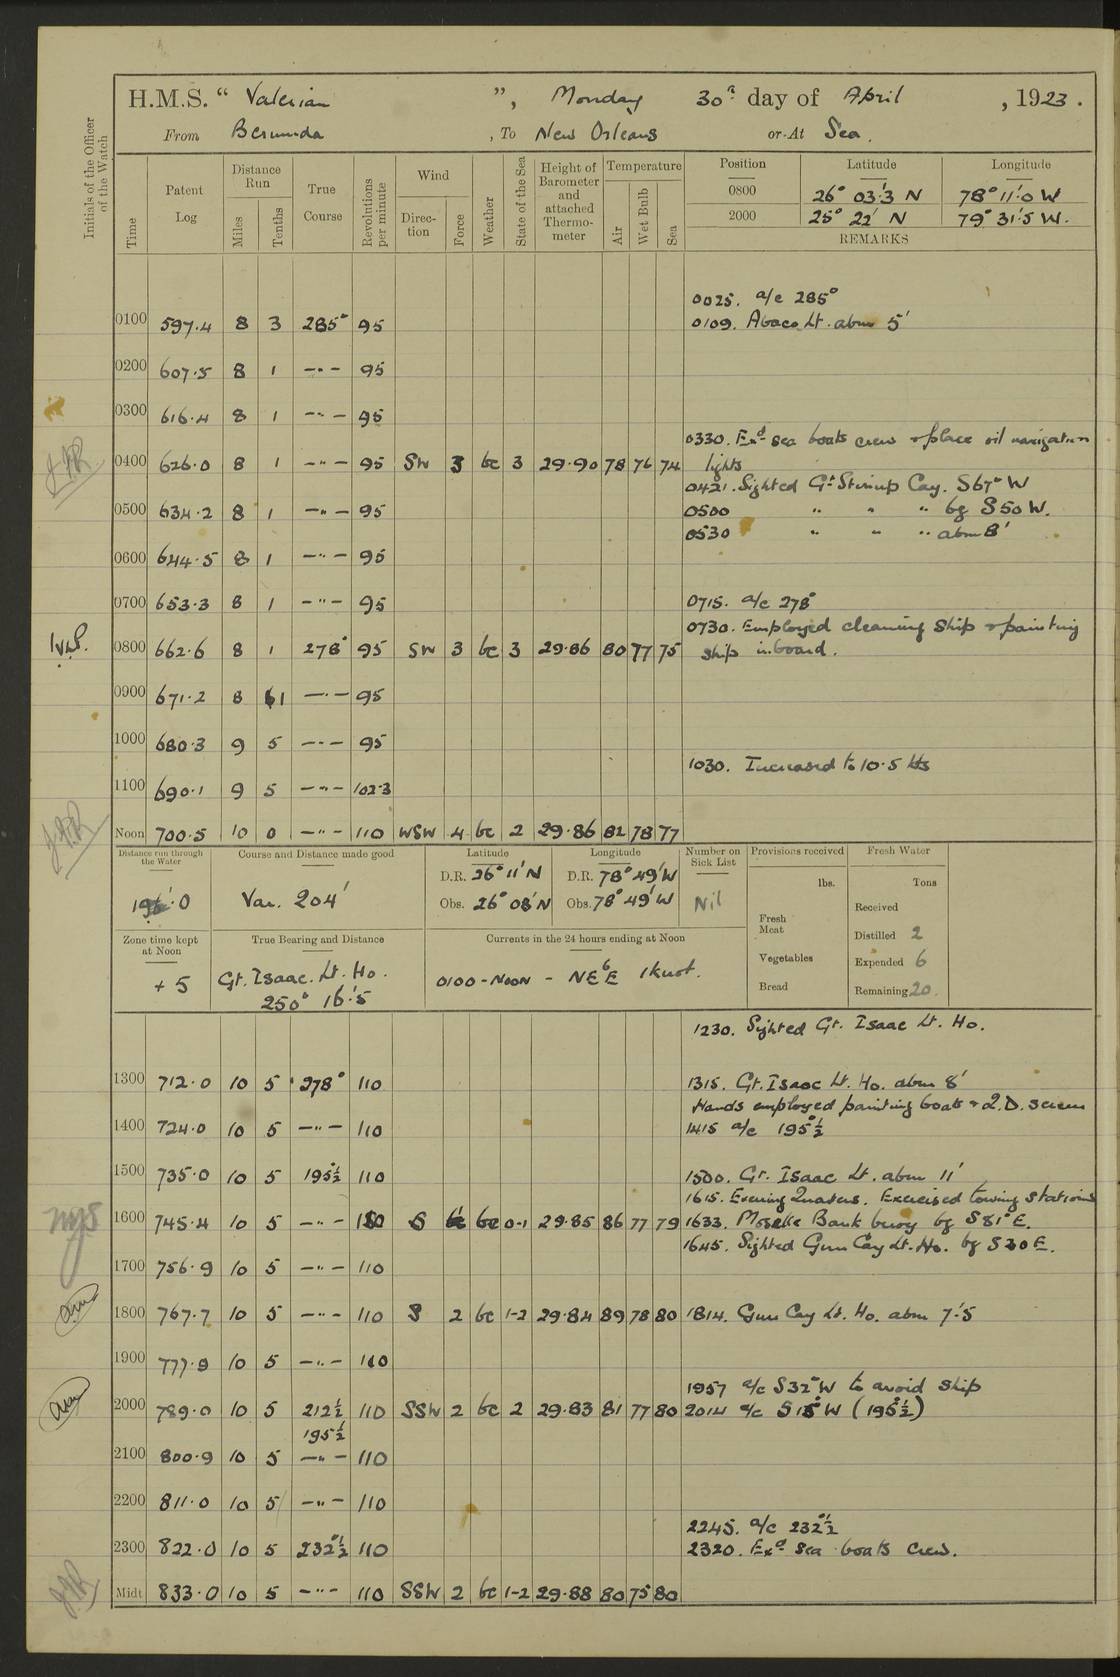 H.M.S. “ Valerian ”, Monday 30th day of April , 1923 .
From Bermuda , To New Orleans or At Sea.
Initials of the Officer of the Watch
Time Patent Log Distance Run Miles Tenths True Course Revolutions per minute Wind Direc- tion Force Weather State of the Sea Height of Barometer and attached Thermo- meter Temperature Air Wet Bulb Sea
Position Latitude Longitude
0800 26° 03'.3 N 78° 11'.0 W
2000 25° 22' N 79° 31'.5 W.
REMARKS
0025. a/c 285°
0100 597.4 8 3 285° 95 0109. Abaco Lt. abm 5'
0200 607.5 8 1 —"— 95
0300 616.4 8 1 —"— 95
0330. Exd sea boats crew & place oil navigation
0400 626.0 8 1 —"— 95 SW 3 bc 3 29.90 78 76 74 lights
0421. Sighted Gt Stirrup Cay. S67°W
0500 634.2 8 1 —"— 95 0500 " " " bg S50W.
0530 " " " abm 8'
0600 644.5 8 1 —"— 95
0700 653.3 8 1 —"— 95 0715. a/c 278°
0730. Employed cleaning ship & painting
0800 662.6 8 1 278° 95 SW 3 bc 3 29.86 80 77 75 ship inboard.
0900 671.2 8 1 —"— 95
1000 680.3 9 5 —"— 95
1030. Increased to 10.5 kts
1100 690.1 9 5 —"— 102.3
Noon 700.5 10 0 —"— 110 WSW 4 bc 2 29.86 82 78 77
Distance run through the Water .0
Course and Distance made good Var. 204'
Latitude D.R. 26° 11' N Obs. 26° 08' N
Longitude D.R. 78° 49' W Obs. 78° 49' W
Number on Sick List Nil
Provisions received lbs. Fresh Meat Vegetables Bread
Fresh Water Tons Received Distilled 2 Expended 6 Remaining 20.
Zone time kept at Noon + 5
True Bearing and Distance Gt. Isaac. Lt. Ho. 250° 16'.5
Currents in the 24 hours ending at Noon 0100 - Noon - NEbE 1 knot.
1230. Sighted Gt. Isaac Lt. Ho.
1300 712.0 10 5 278° 110 1315. Gt. Isaac Lt. Ho. abm 8'
Hands employed painting boats & Q.D. screen
1400 724.0 10 5 —"— 110 1415 a/c 195°½
1500 735.0 10 5 195°½ 110 1500. Gt. Isaac Lt. abm 11'
1615. Evening Quarters. Exercised towing stations
1600 745.4 10 5 —"— 110 S bc 0-1 29.85 86 77 79 1633. Moselle Bank buoy bg S81°E.
1645. Sighted Gun Cay Lt. Ho. bg S30E.
1700 756.9 10 5 —"— 110
1800 767.7 10 5 —"— 110 S 2 bc 1-2 29.84 89 78 80 1814. Gun Cay Lt. Ho. abm 7'.5
1900 777.9 10 5 —"— 110
1957 a/c S32°W to avoid ship
2000 789.0 10 5 212½ 110 SSW 2 bc 2 29.83 81 77 80 2014 a/c S15°W (195°½)
195½
2100 800.9 10 5 —"— 110
2200 811.0 10 5 —"— 110
2245. a/c 232°½
2300 822.0 10 5 232°½ 110 2320. Exd sea boats crew.
Midt 833.0 10 5 —"— 110 SSW 2 bc 1-2 29.88 80 75 80